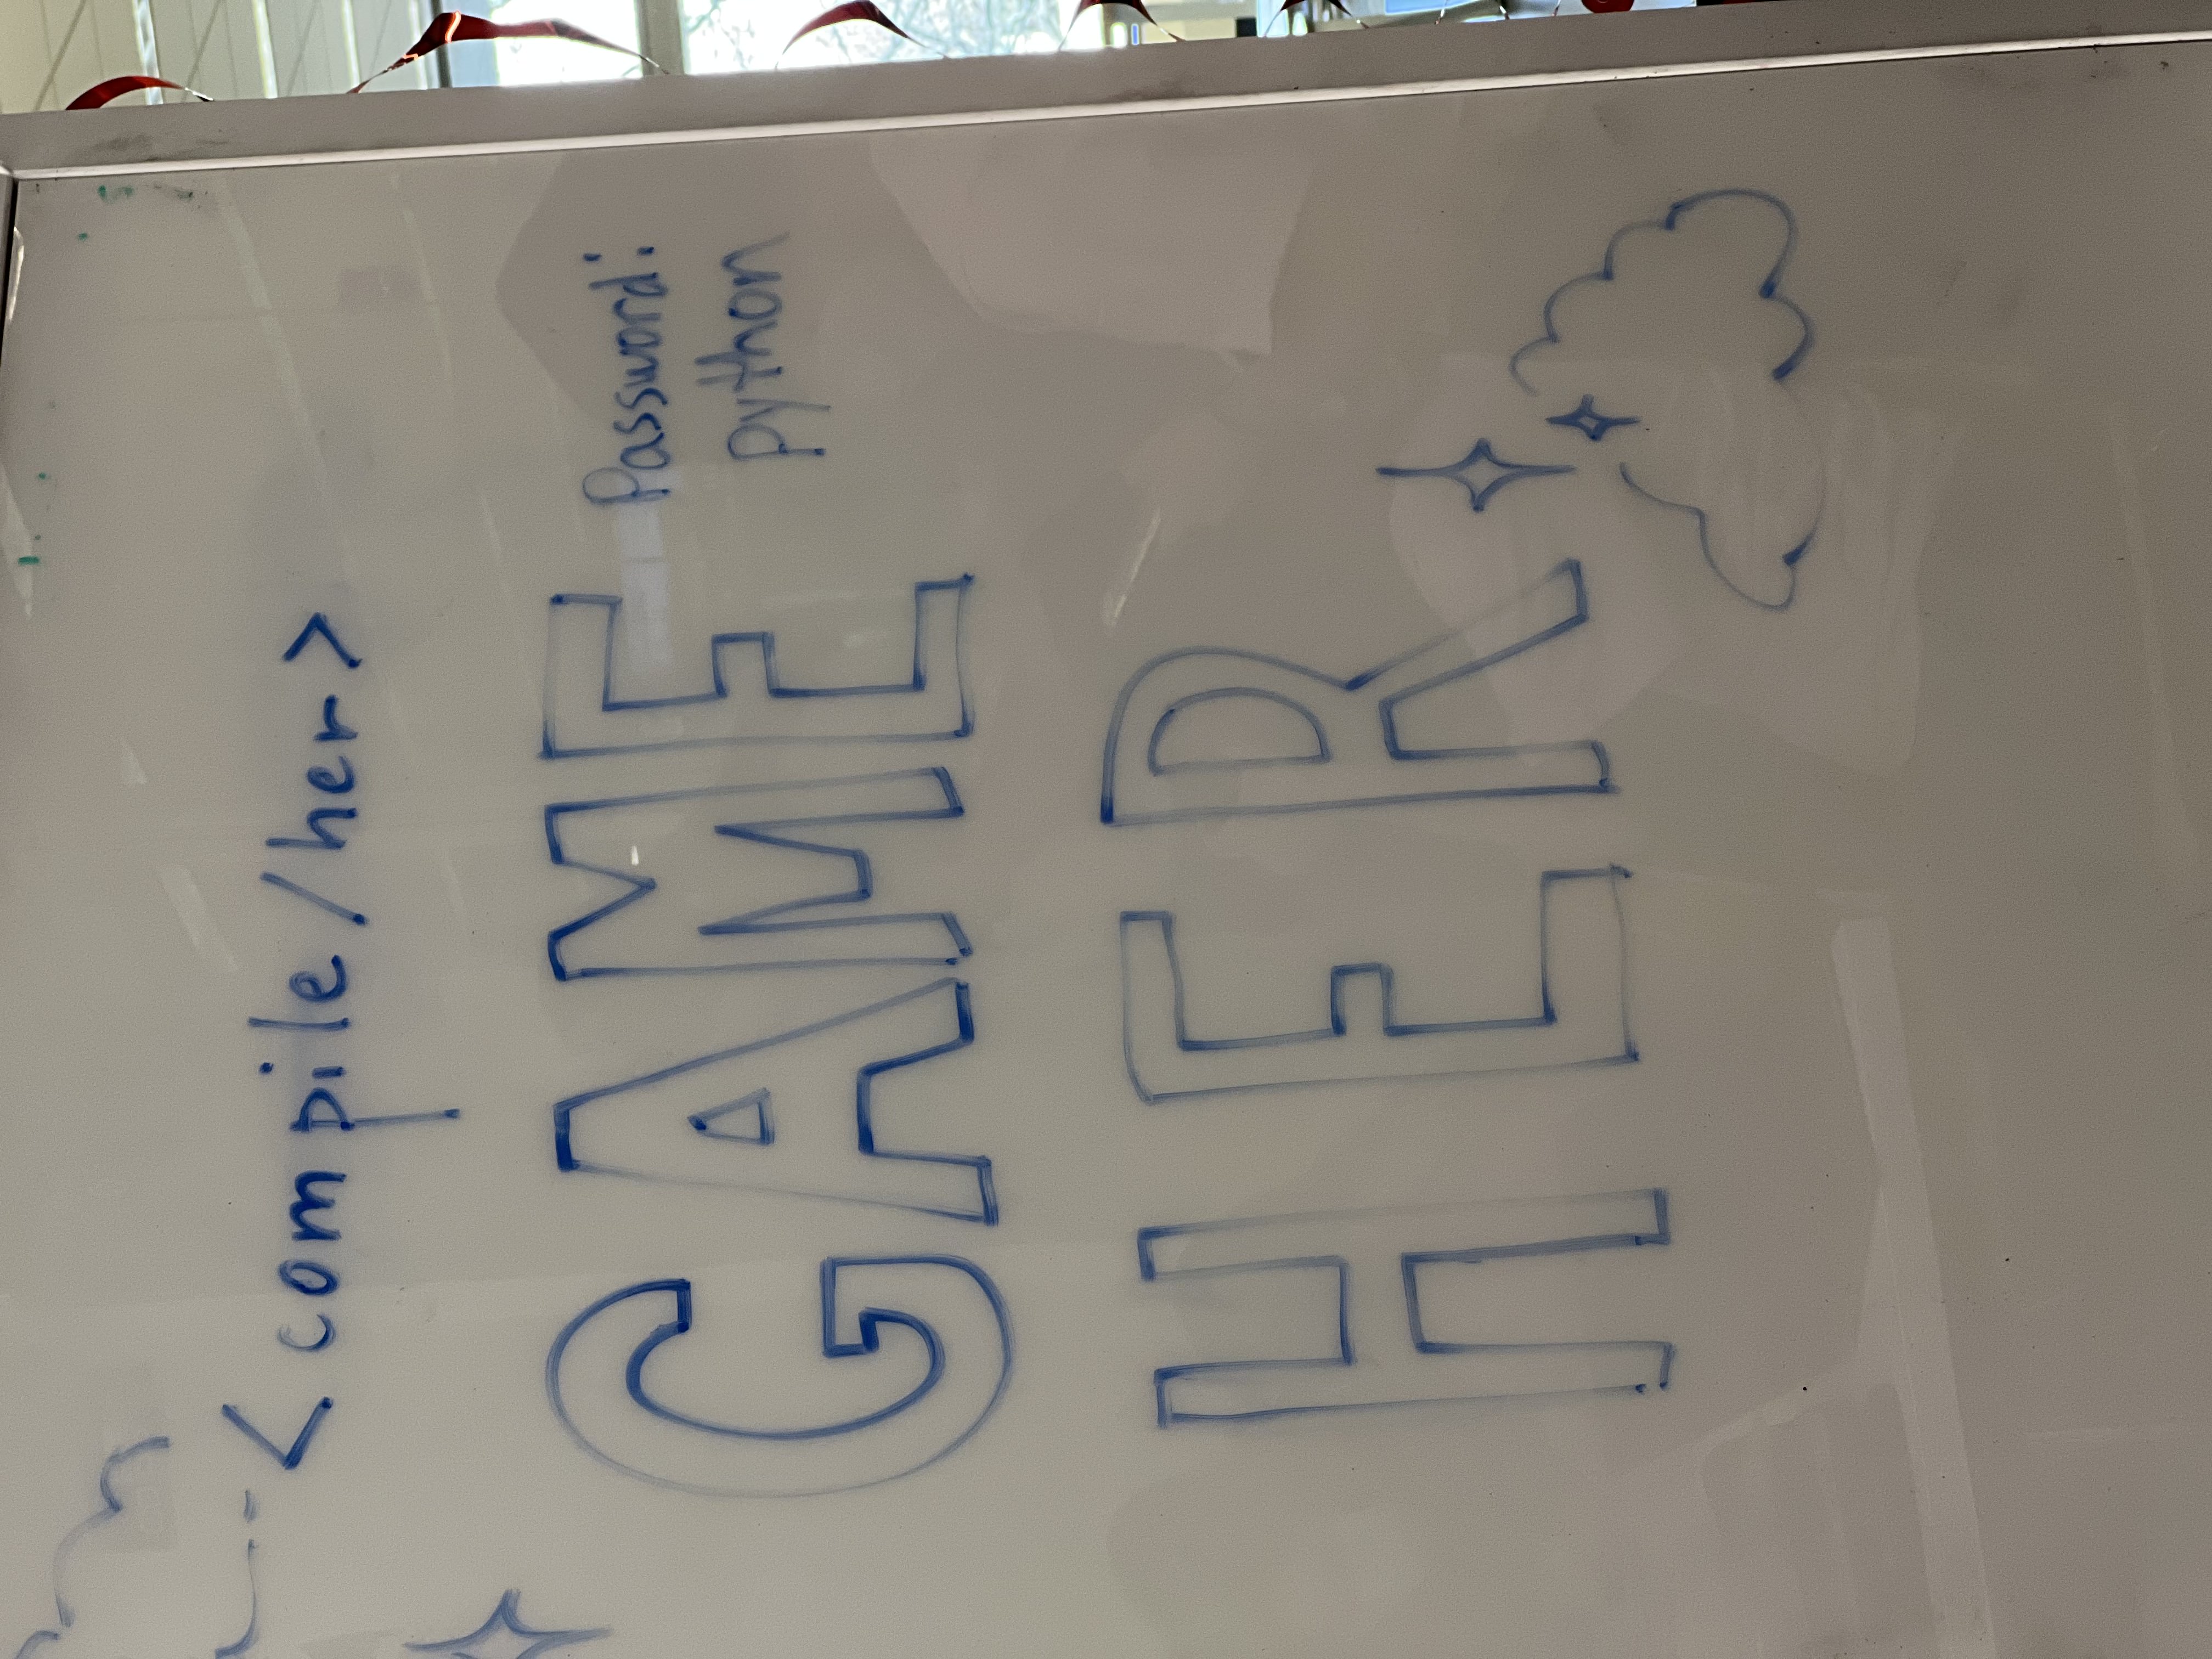 <compile/her>
GAME
Password:
python
HER